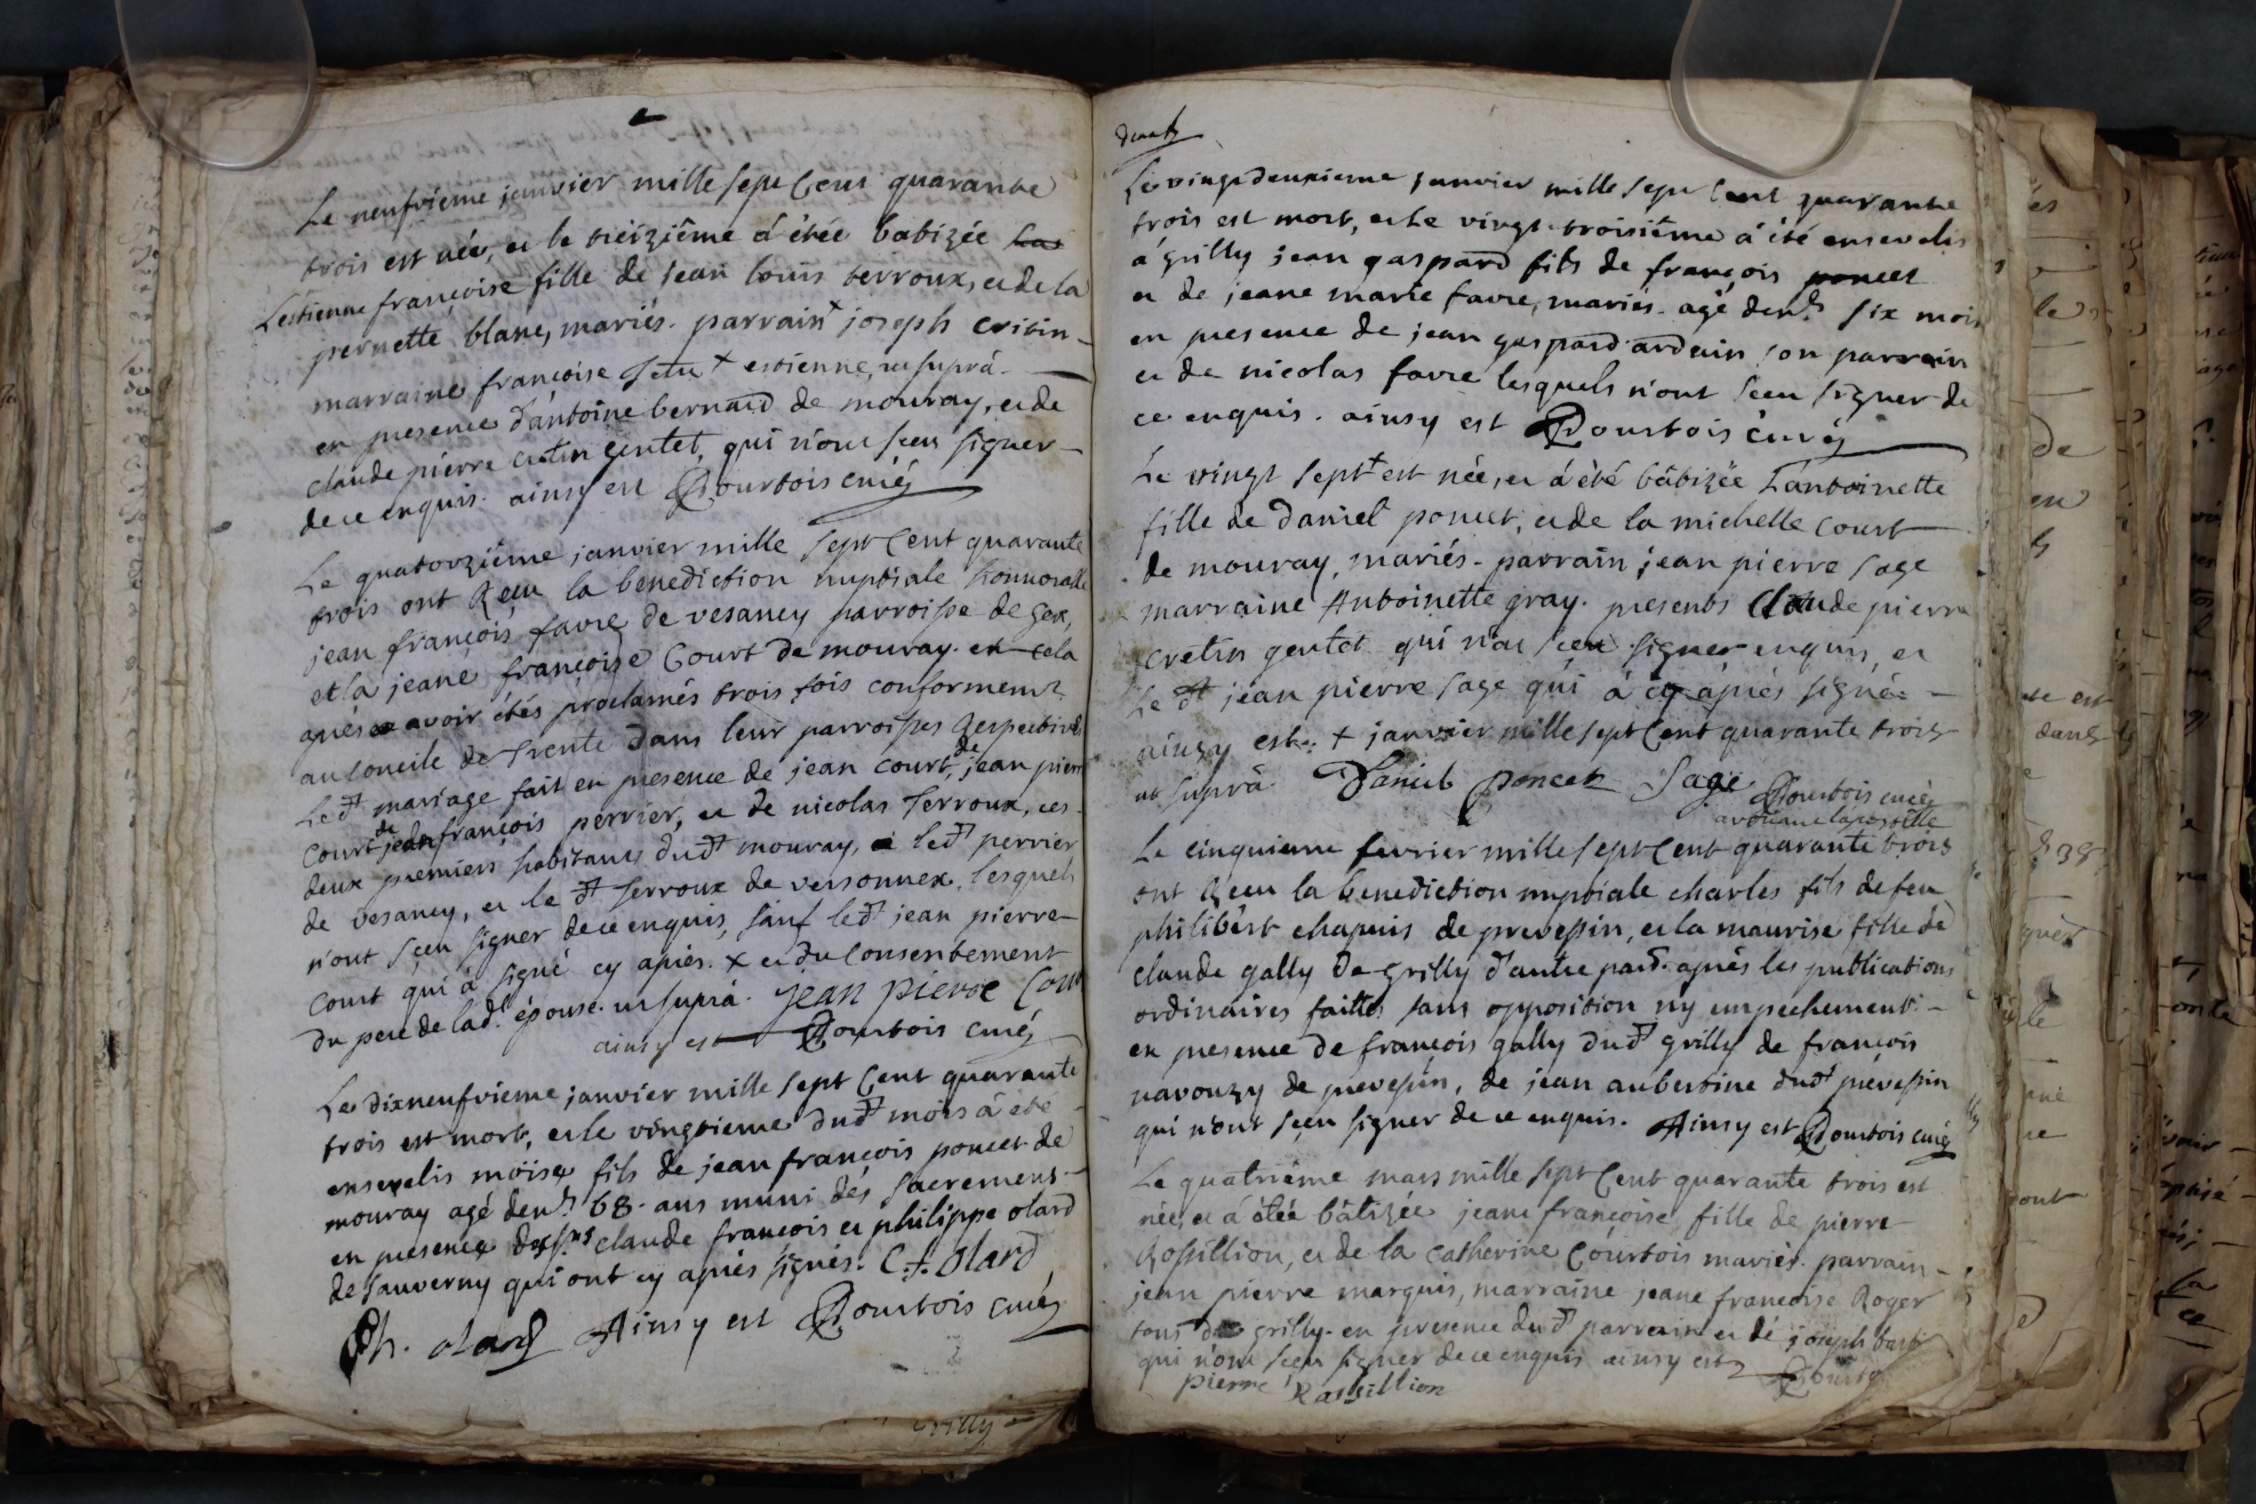 Le neufvieme janvier mille sept cent quarante
trois est née, et le treizième á étée batizée
L'estienne françoise fille de jean louis terroux, et de la
pernette blanc, mariés. parrain joseph cretin -
marraine françoise estienne, ut suprá.
en presence d'antoine bernard de mouray, et de
claude pierre cretin gentet, qui n'ont sçeu signer -
de ce enquis. ainsy est Courtois curé
Le quatorzième janvier mille sept cent quarante
trois ont Reçu la benediction nuptiale honnorable
jean françois favre de vesancy parroisse de gex,
et la jeane françoise Court de mouray.
après avoir étés proclamés trois fois conformemt.
au concile de trente dans leur parroisses Respectives
Le dt mariage fait en presence de jean court, de jean pierre
court de jean françois perrier, et de nicolas terroux, ces
deux premiers habitants du dt mouray, le dt perrier
de vesancy, et le dt terroux de versonnex, lesquels
n'ont sçeu signer de ce enquis, sauf le dt jean pierre
court qui á signé cy après. x et du consentement
du pere de lad. épouse. ut suprá. jean pierre Cour
ainsy est Courtois curé
Le dixneufvieme janvier mille sept cent quarante
trois est mort, et le vingtieme du dt mois á été
ensevelis moïse fils de jean françois poncet de
mouray agé denv. 68. ans muni des sacremens.
en presence des srs claude françois et philippe olard
de sauverny qui ont cy après signés. C. f. Olard
Ph. olard Ainsy est Courtois curé
grilly
Le vingt deuxieme janvier mille sept cent quarante
trois est mort, et le vingt troisième á été ensevelis
á grilly jean gaspard fils de françois poncet
et de jeane marie favre, mariés. agé denv. six mois
en presence de jean gaspard arduin son parrain
et de nicolas favre lesquels n'ont sçeu signer de
ce enquis. ainsy est Courtois curé
Le vingt sept + est née, et á été bâtizée L'antoinette
fille de daniel poncet, et de la michelle court
de mouray, mariés. parrain jean pierre sage
marraine Antoinette gray. presents Claude pierre
cretin gentet qui n'at sçeu signer enquis, et
le dt jean pierre sage qui á cy après signée -
ainsy est. + janvier mille sept cent quarante trois
ut suprá. Daniel poncet Sage Courtois curé
avouant lapostille
Le cinquieme fevrier mille sept cent quarante trois
ont Reçu la benediction nuptiale charles fils de feu
philibert chapuis de prevessin, et la maurise fille de
claude gally de grilly d'autre part. après les publications
ordinaires faittes sans opposition ny empechement. -
en presence de françois gally du dt grilly de françois
navouzy de prevessin, de jean aubertine du dt prevessin
qui n'ont sçeu signer de ce enquis. Ainsy est Courtois curé
Le quatrième mars mille sept cent quarante trois est
née, et á étée bâtizée jeane françoise fille de pierre
Rossillion, et de la catherine Courtois mariés. parrain -
jean pierre marquis, marraine jeane françoise Roger
tous de grilly. en presence du dt parrain et de joseph
qui n'ont sçeu signer de ce enquis ainsy est
pierre Rassillion